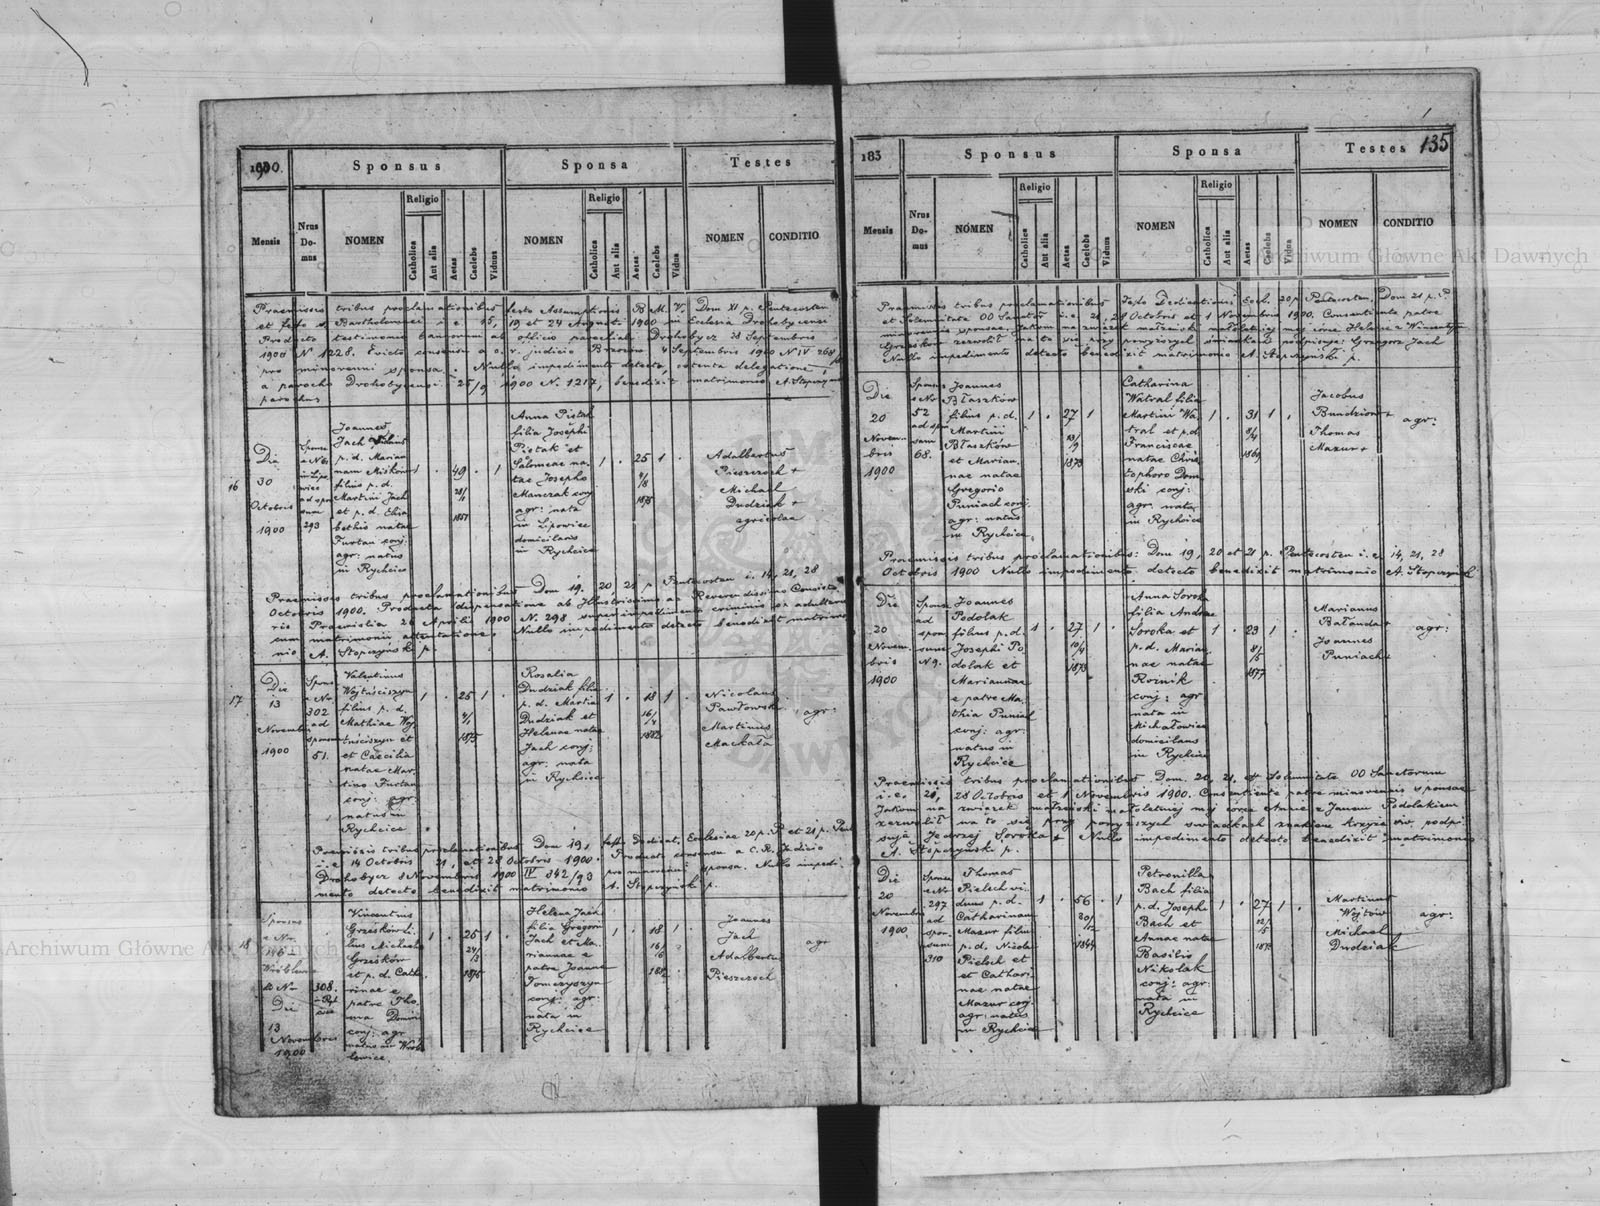 1890.
Sponsus
Sponsa
Testes
Mensis
Nrus Do-mus
NOMEN
Religio
Catholica
Aut alia
Aetas
Caelebs
Viduus
NOMEN
Religio
Catholica
Aut alia
Aetas
Caelebs
Vidua
NOMEN
CONDITIO
Praemissis tribus proclamationibus festo Assumptionis B.M.V. Dom XI p. Pentecosten
et festo s. Bartholomaei i. e. 15, 19 et 24 Augusti 1900 in Ecclesia Drohobycensi
Producto testimonio bannorum ab officio parochiali Drohobycz 28 Septembris
1900 N. 1228.
pro minorenni sponsa. Nullo impedimento detecto, obtenta delegatione
a parocho Drohobycensi 25/9 1900 N. 1217, benedixit matrimonio A. Stopczyński
parochus
16
Die
30
Octobris
1900
293
Joannes
Jach viduus
p. d. Marian
filius p. d.
Martini Jach
et p. d. Elisa
bethis natae
Furtan conj:
agr: natus
in Rychcice
1 . 49 . 1
1851
Anna Pistak
filia Josephi
Pistak et
Salomeae na-
tae Josepho
Manczak conj
agr: nata
in Lipowiec
domicilans
in Rychcice
1 . 25 1
9/8
1875
Adalbertus
Pieszczoch +
Michael
Dudziak +
agricolae
Praemissis tribus proclamationibus Dom 19, 20, 21 p. Pentecosten i. 14, 21, 28
Octobris 1900. Producta dispensatione ab Illustrissimo ac Reverendissimo Consisto
rio Praemislia 26 Aprili 1900 N. 298 super impedimento criminis ex adulterio
cum matrimonii attentatione. Nullo impedimento detecto benedixit matrimo
nio A. Stopczyński p.
17
Die
13
Novembris
1900
Spons
e No
302
ad
sponsam
51.
Valentinus
Wojtuściszyn
filius p. d.
Mathiae Woj
tuściszyn et
et Caecilia
natae Mar
tino Furtan
conj: agr:
natus in
Rychcice
1 . 25 1
1875
Rosalia
Dudziak filia
p. d. Martini
Dudziak et
Helenae natae
Jach conj;
agr: nata
in Rychcice
1 . 18 1
1882
Nicolaus
Pawłowski
Martinus
Machała
agr:
Praemissis tribus proclamationibus Dom 19, festo Dedicat. Ecclesiae 20 p. P et 21 p. Pent
i. e 14 Octobris 21, et 28 Octobris 1900. Producto consensu a C. R. Judicio
Drohobycz 8 Novembris 1900 IV 342/93 pro minorenni sponsa. Nullo impedi
mento detecto benedixit matrimonio A. Stopczyński p.
18
Sponsus
e No
146
308.
Die
13
Novembris
1900
Vincentius
Grześków fi
lius Michaelis
Grześków
et p. d. Cath
rinae e
patre Tho
ma Domin
conj: agr
natus in Wrób
lewice.
1 . 25 1
24/3
1875
Helena Jach
filia Gregorii
Jach et Ma
riannae e
patre Joanne
Tomczyszyn
conj: agr:
nata in
Rychcice
1 . 18 1
16/6
1882
Joannes
Jach
Adalbertus
Pieszczoch
agr
183
Sponsus
Sponsa
Testes
135
Mensis
Nrus Do-mus
NOMEN
Religio
Catholica
Aut alia
Aetas
Caelebs
Viduus
NOMEN
Religio
Catholica
Aut alia
Aetas
Caelebs
Vidua
NOMEN
CONDITIO
Praemissis tribus proclamationibus Festo Dedicationis Eccl. 20 p Pentecosten, Dom 21 p. P.
et Solemnitate OO Sanctor i. e 21, 28 Octobris et 1 Novembris 1900. Consentiente patre
minorennis sponsae, Jakom na związek małżeński małoletniej mej córce Helenie z Wincentym
Grześków zezwolił na to się przy powyższych świadkach podpisuję: Grzegorz Jach
Nullo impedimento detecto benedixit matrimonio A. Stopczyński p.
Die
20
Novem-
bris
1900
Sponsus
e No
52
ad spon
sam
68.
Joannes
Błaszków
filius p. d.
Martini
Błaszków
et Marian
nae natae
Gregorio
Puniach conj
agr: natus
in Rychcice
1 . 27 1
13/9
1873
Catharina
Watral filia
Martini Wa-
tral et p. d.
Franciscae
natae Chris
tophoro Dom
ski conj:
agr. nata
in Rychcice
1 . 31 1 .
1869
Jacobus
Bundzion +
Thomas
Mazur +
agr:
Praemissis tribus proclamationibus: Dom 19, 20 et 21 p. Pentecosten i. e 14, 21, 28
Octobris 1900 Nullo impedimento detecto benedixit matrimonio A. Stopczyński
Die
20
Novem-
bris
1900
Sponsus
ad
spon
sam
N 9.
Joannes
Podolak
filius p. d.
Josephi Po
dolak et
Mariannae
e patre Ma
thia Puniach
conj: agr:
natus in
Rychcice
1 . 27 1 .
10/4
1873
Anna Soroka
filia Andreae
Soroka et
p. d. Marian
nae natae
Roznik
conj: agr
nata in
Michałowice
domicilans
in Rychcice
1 . 23 1 .
8/5
1877
Marianus
Bałanda +
Joannes
Puniach +
agr:
Praemissis tribus proclamationibus Dom. 20, 21, et Solemnitate OO Sanctorum
i. e. 21, 28 Octobris et 1 Novembris 1900. Consentiente patre minorennis sponsae
Jakom na związek małżeński małoletniej mej córce Annie z Janem Podolakiem
zezwolił na to się przy powyższych świadkach znakiem krzyża św. podpi
suję Jędrzej Soroka + Nullo impedimento detecto benedixit matrimonio
A. Stopczyński p.
Die
20
Novembris
1900
Sponsus
e No
297
ad
spon
sam
310
Thomas
Pielech vi
duus p. d.
Catharinam
Mazur filius
p. d. Nicola
Pielech et
et Cathari
nae natae
Mazur conj.
agr: natus
in Rychcice
1 . 56 . 1
20/12
1844
Petronilla
Bach filia
p. d. Josephi
Bach et
Annae natae
Basilio
Nikolak
conj: agr:
nata in
Rychcice
1 . 27 1 .
12/5
1873
Martinus
Wojtów
Michael
Dudziak
agr:
Archiwum Główne Akt Dawnych
Archiwum Główne Akt Dawnych